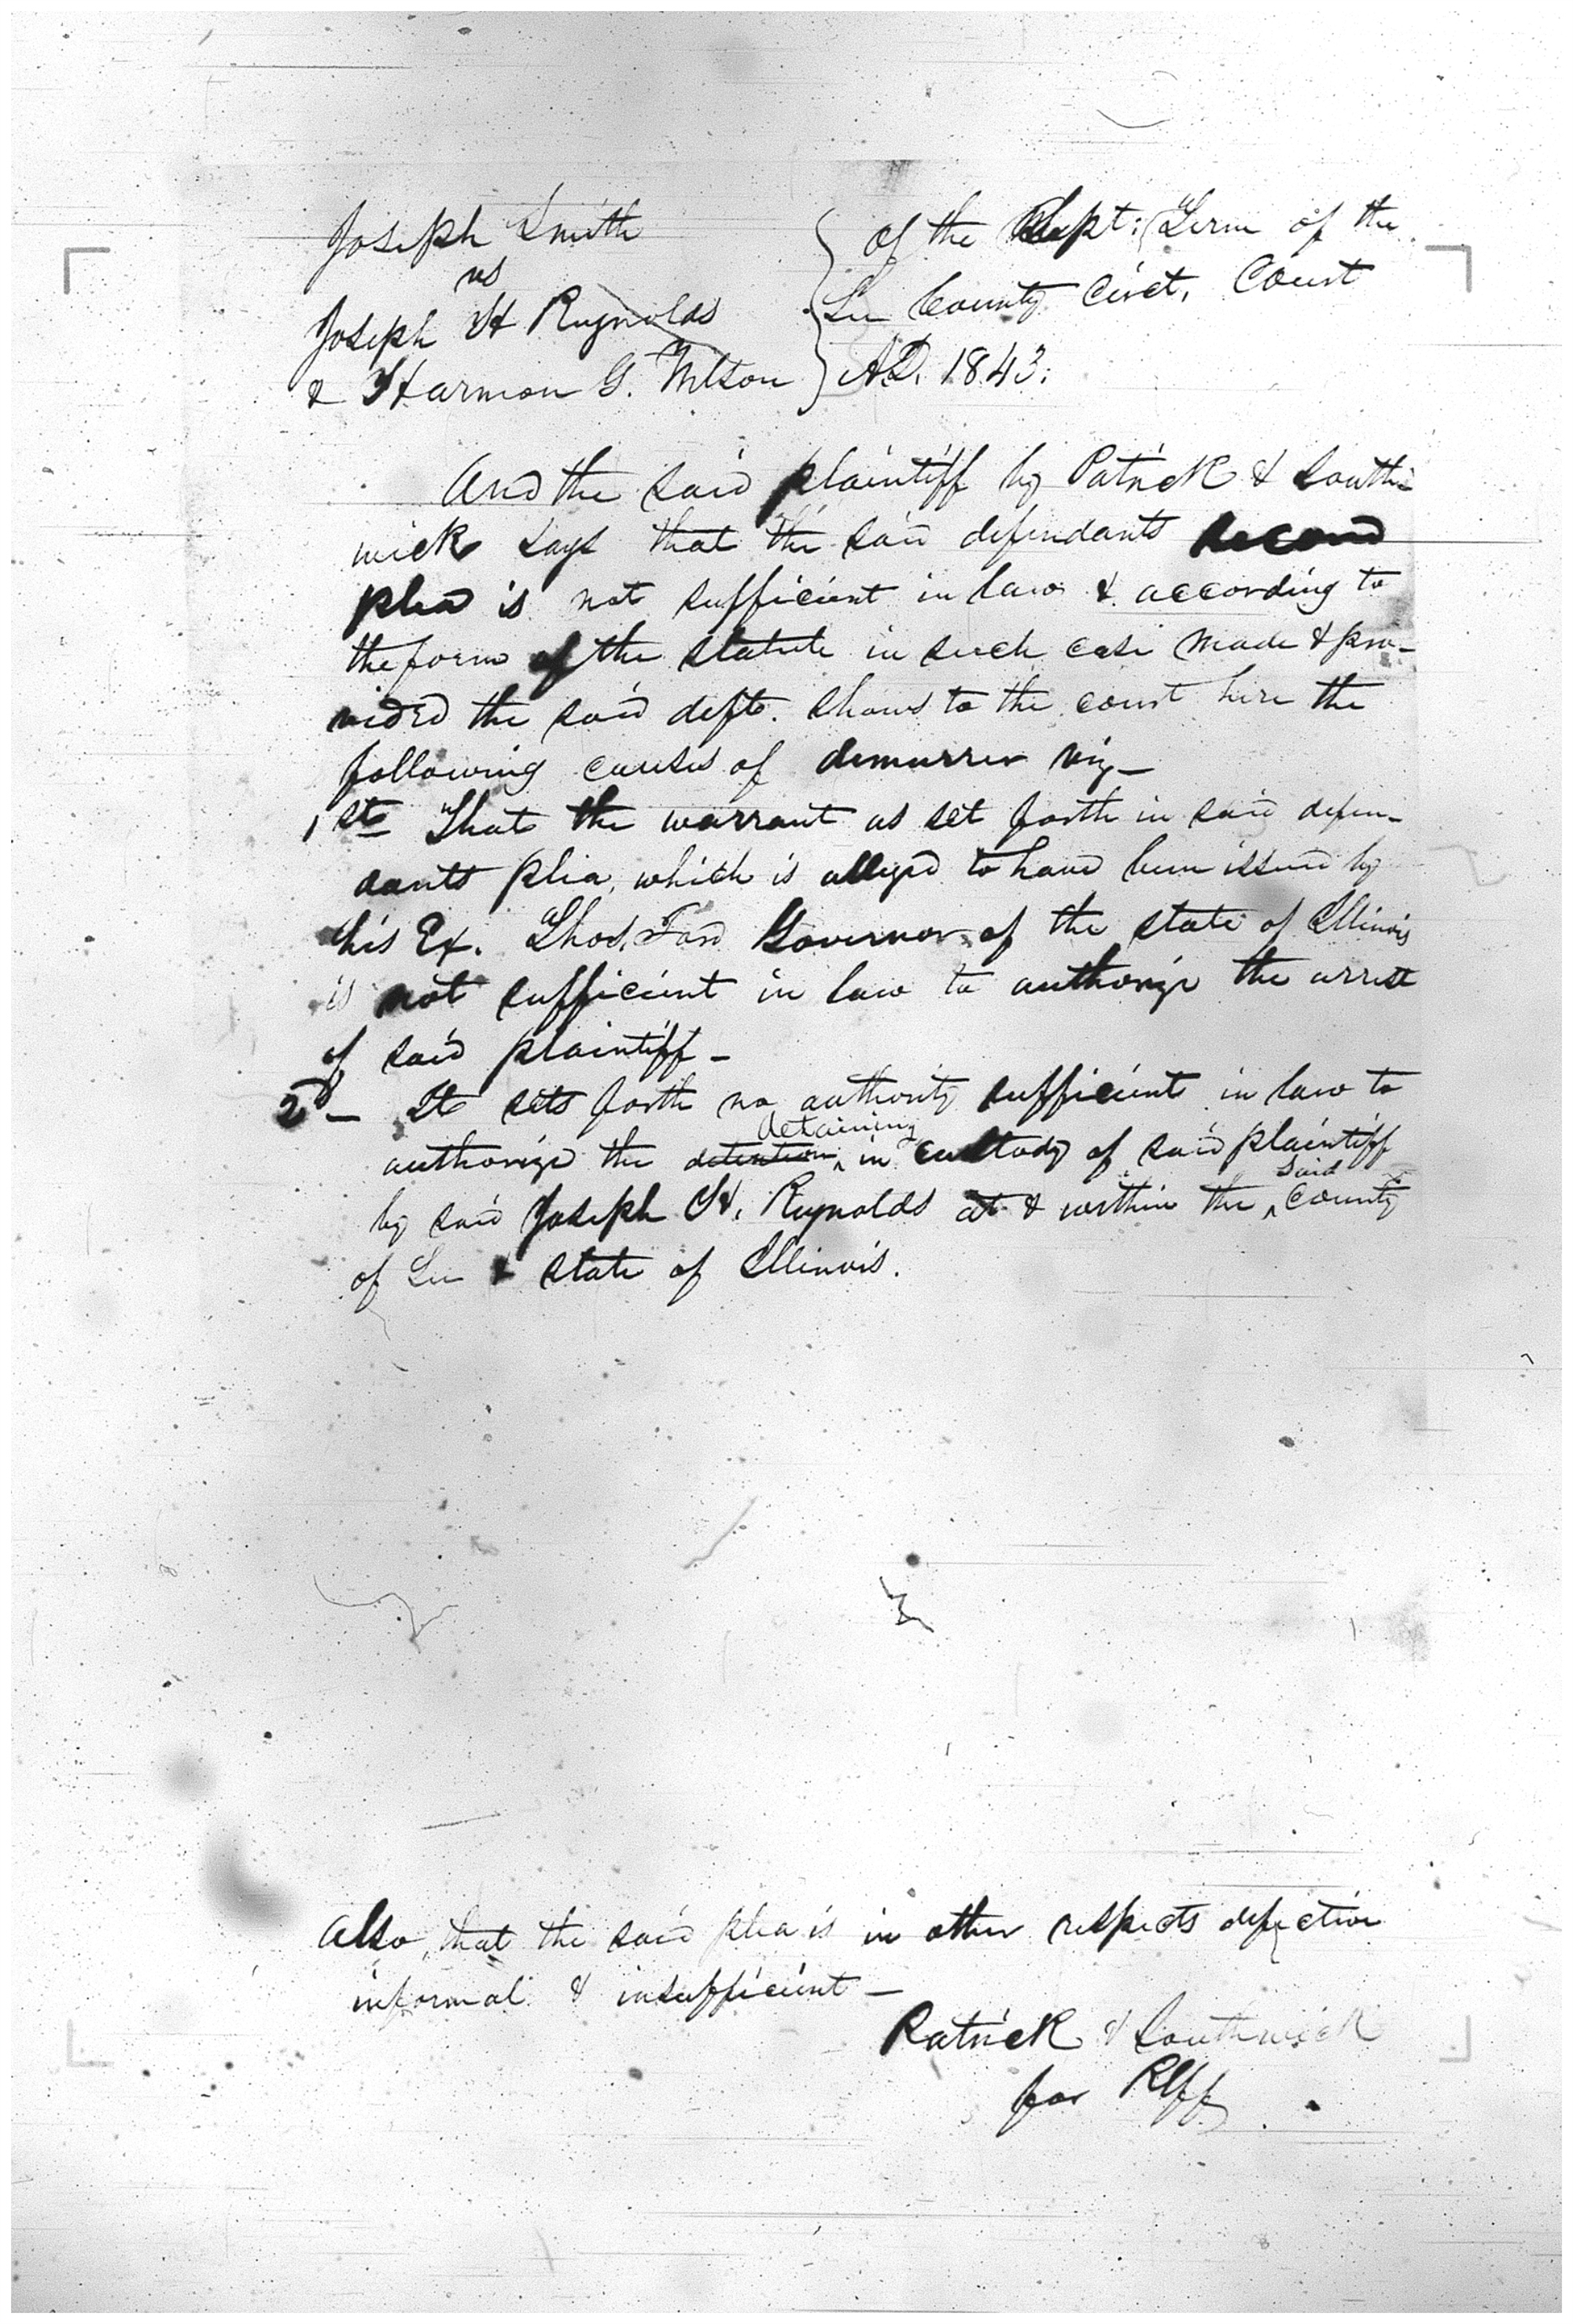 Joseph Smith
vs
Joseph H Reynolds
& Harmon G. Wilson
of the Sept: Term of the
Lee County Circt. Court
A.D. 1843.
And the said plaintiff by Patrick & South-
wick says that the said defendants second
plea is not sufficient in law & according to
the form of the statute in such case made & pro-
vided the said deft. shows to the court here the
following causes of demurrer viz-
1st That the warrant as set forth in said defen-
dants plea, which is alleged to have been issued by
his Ex. Thos. Ford Governor of the state of Illinois
is not sufficient in law to authorize the arrest
of said plaintiff-
2d- It sets forth no authority sufficient in law to
detaining
authorize the detention in custody of said plaintiff
said
by said Joseph H. Reynolds at & within the County
of Lee & state of Illinois.
Also, that the said plea is in other respects defective
informal & insufficient-
Patrick & Southwick
for Plff